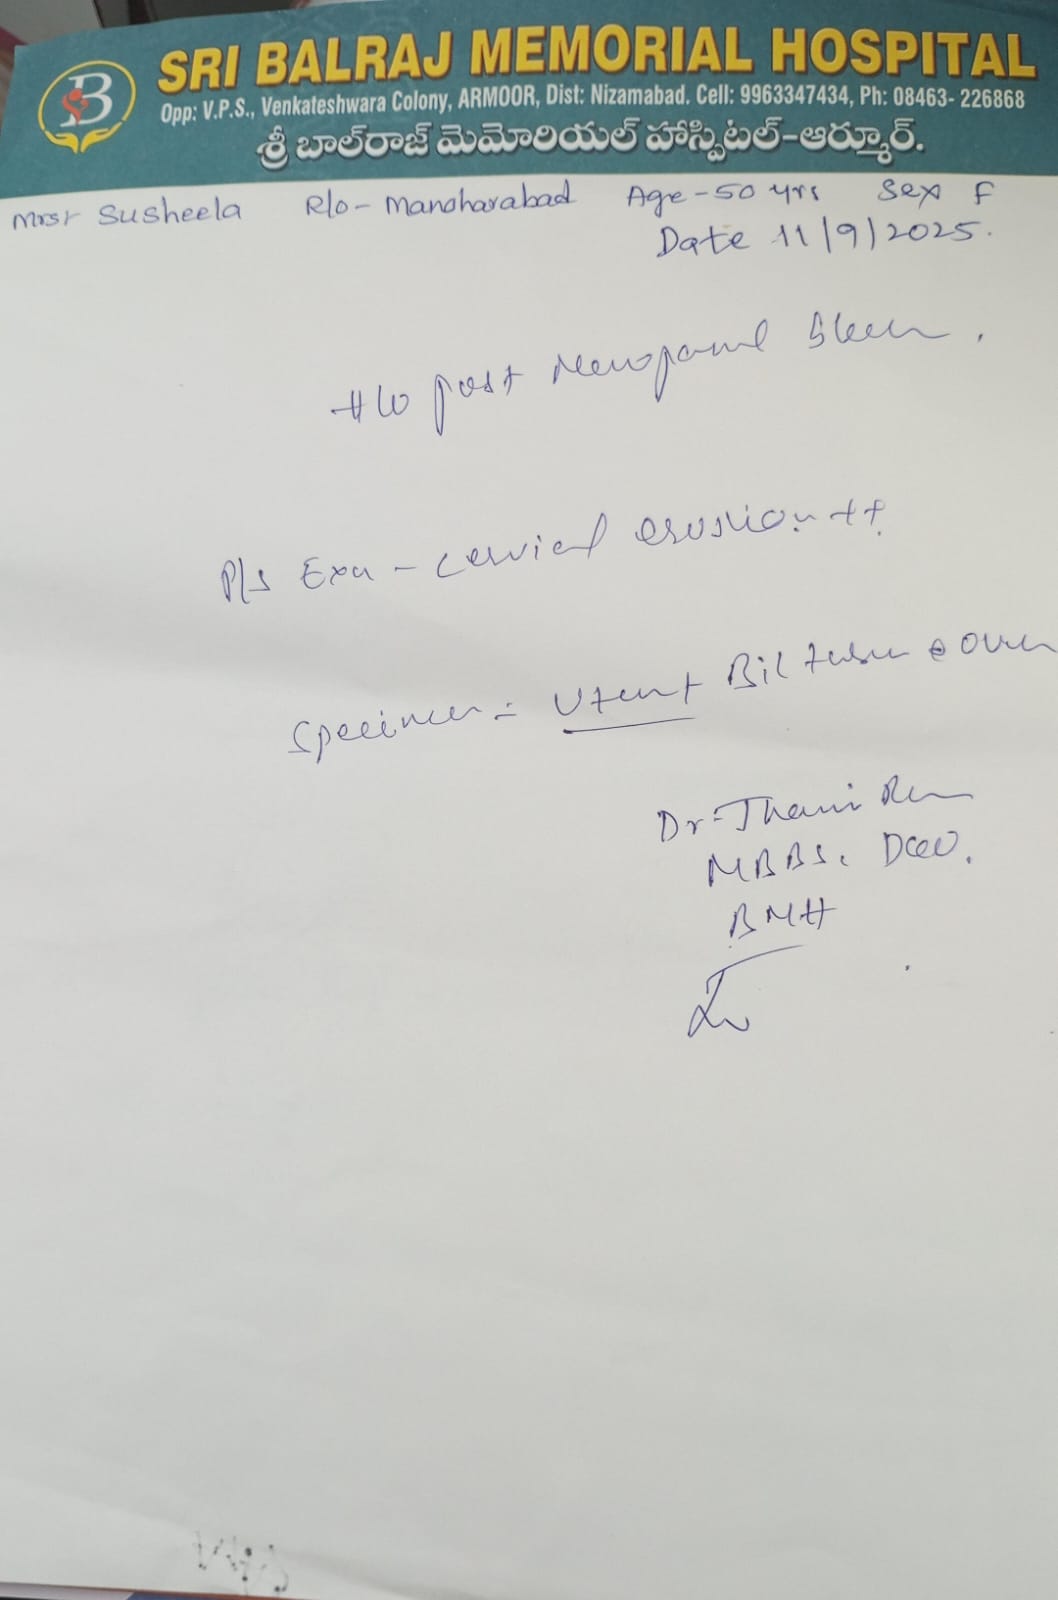 B
SRI BALRAJ MEMORIAL HOSPITAL
Opp: V.P.S., Venkateshwara Colony, ARMOOR, Dist: Nizamabad. Cell: 9963347434, Ph: 08463- 226868
శ్రీ బాల్‌రాజ్ మెమోరియల్ హాస్పిటల్-ఆర్మూర్.
Susheela R/o - Manoharabad Age - 50 yrs Sex F
Date 11/9/2025.
H/o post
P/s Exa - cervical erosion ++
Specimen - Bil
Dr-
MBBS.
BMH